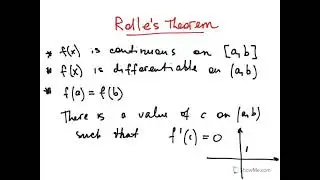 Rolle's Theorem
* f(x) is continuous on [a,b]
* f(x) is differentiable on (a,b)
* f(a) = f(b)
There is a value of c on (a,b)
such that f'(c) = 0
ShowMe.com